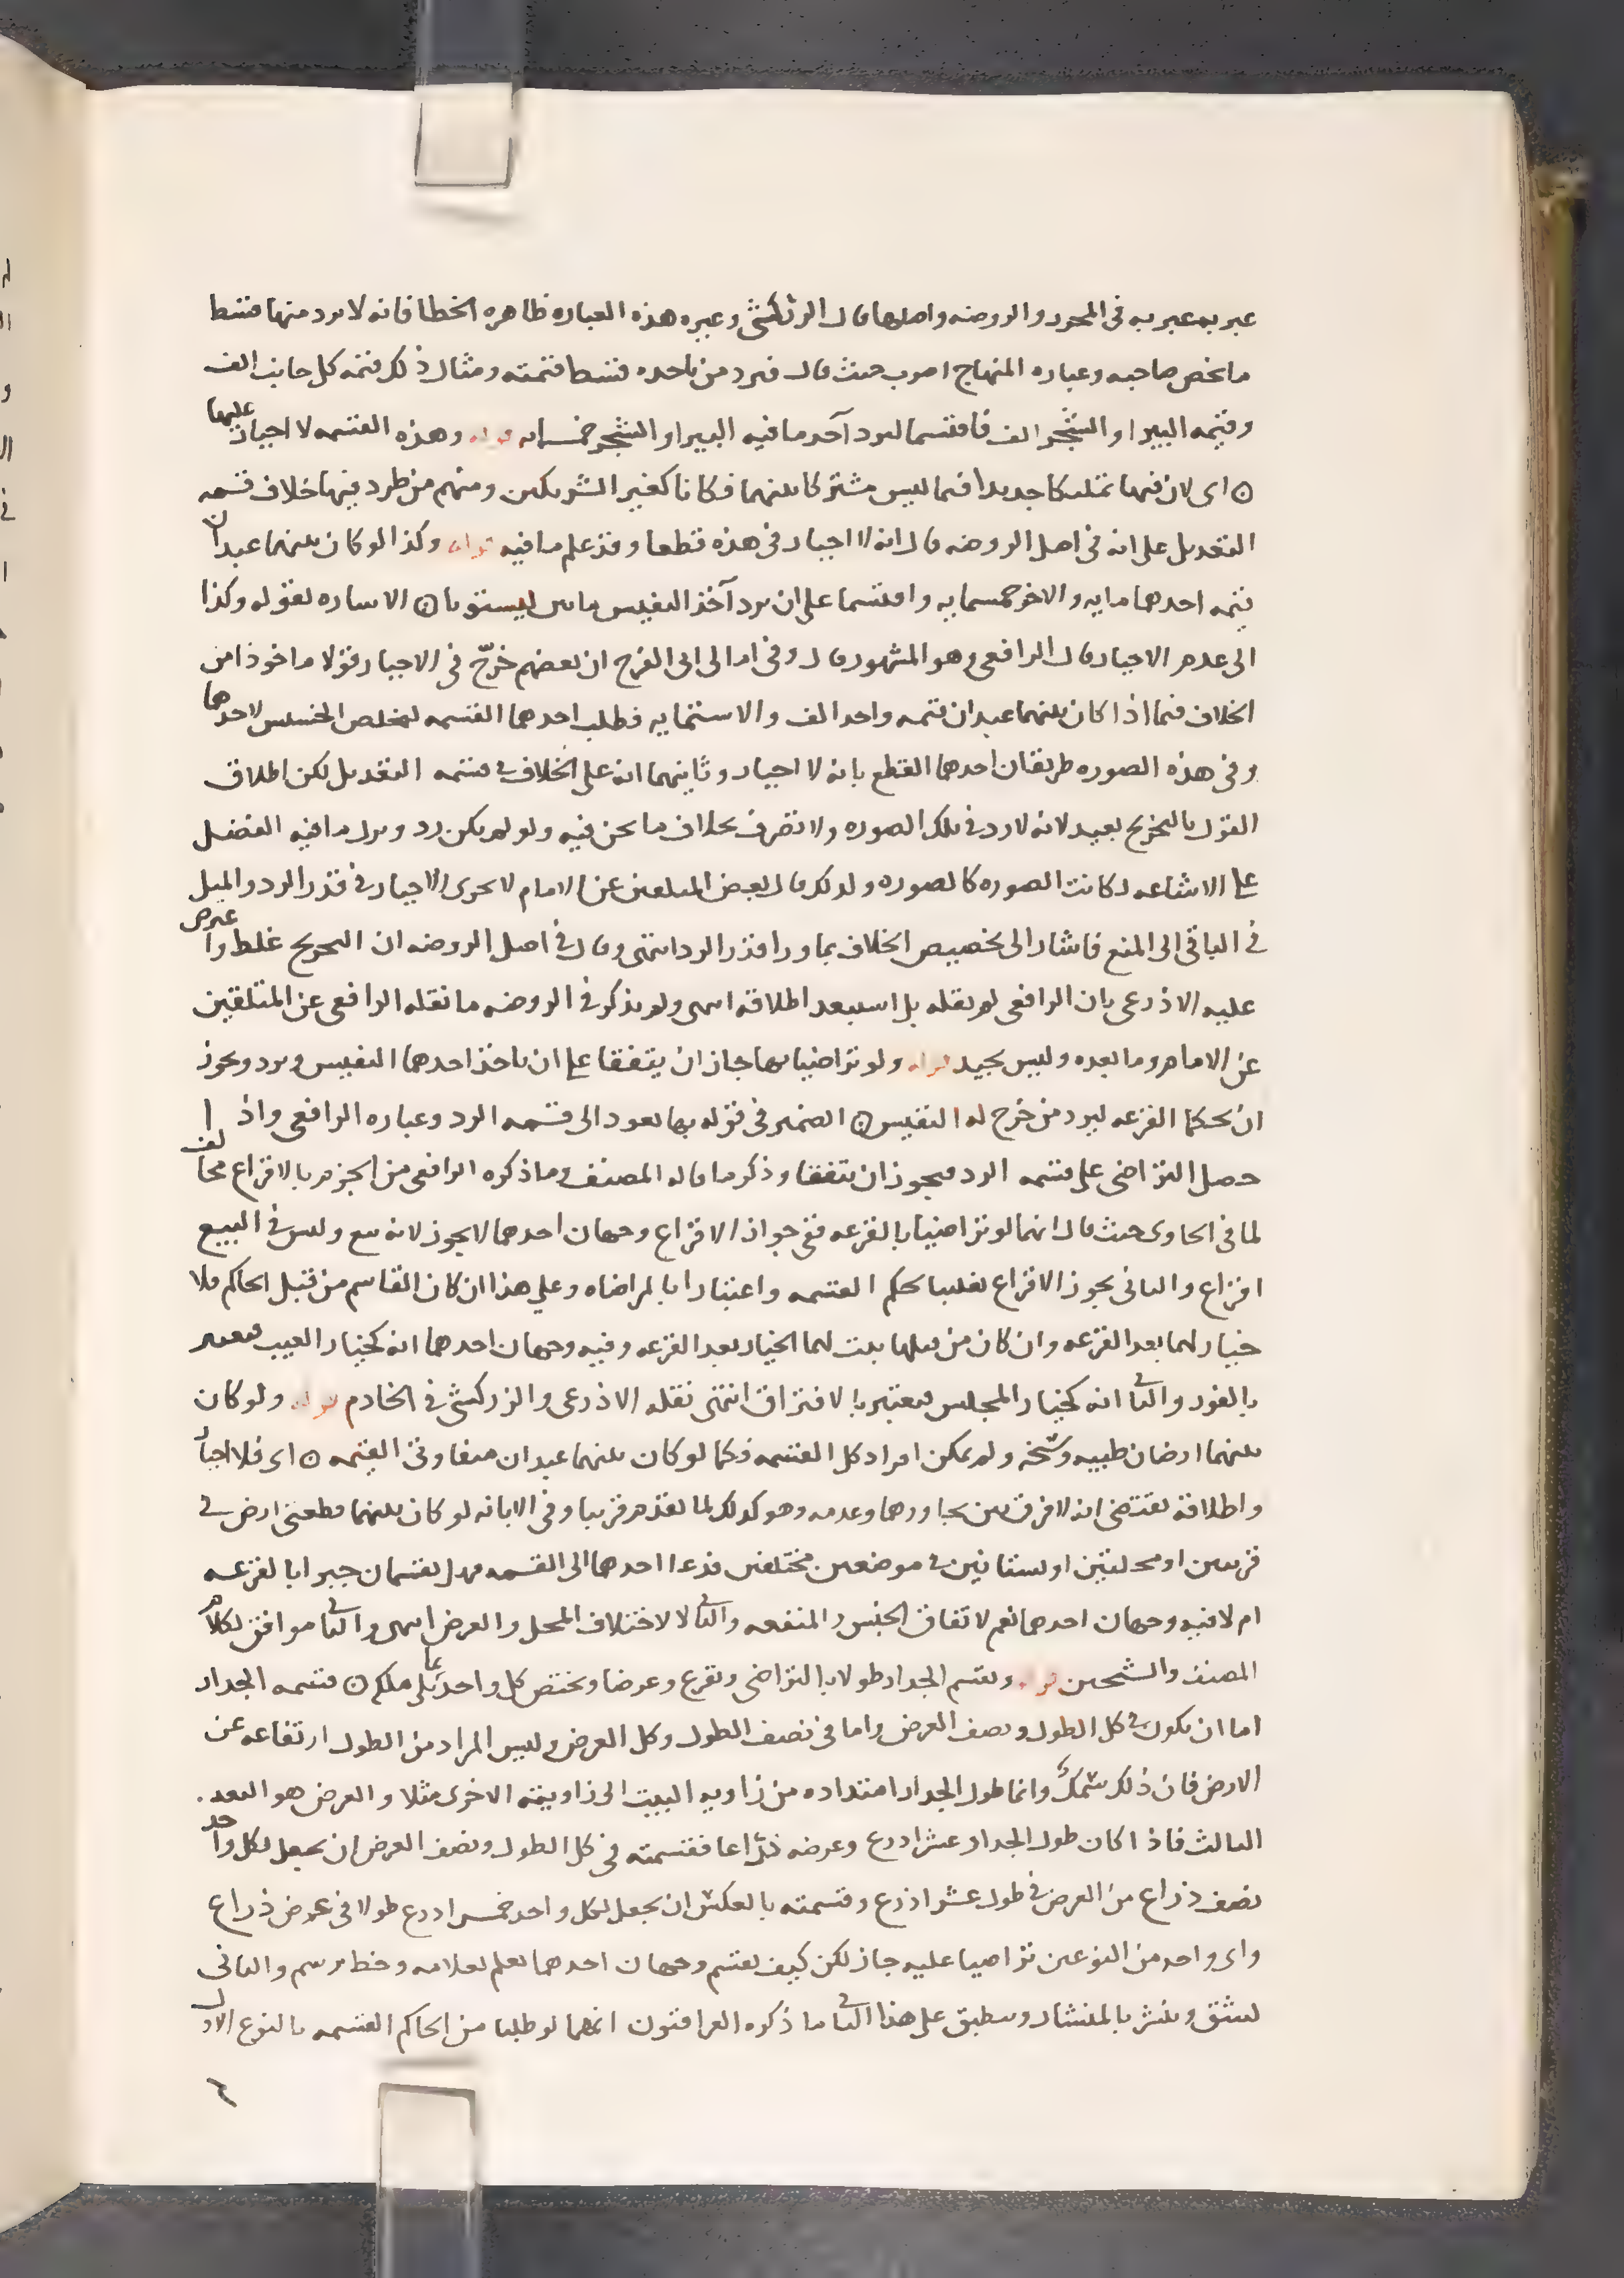 عبر به عبر به فى المحرر والروضه واصلها قال الزركشى وغيره هذه العباره ظاهره الخطا فانه لا يرد منها قسط
ما يخص صاحبه وعباره المنهاج اصوب حيث قال فيرد من ياخده قسط قيمته ومثال ذلك قيمه كل جانب الف
وقيمه البير او الشجر الف فاقتسما ليرد آخد ما فيه البير او الشجر خمسمايه قوله وهذه القسمه لا اجبار عليها
ه اى لان فيها تمليكا جديدا فيما ليس مشتركا بينهما فكانا كغير الشريكين ومنهم من طرد فيها خلاف قسمه
التعديل على انه فى اصل الروضه قال انه لا اجبار فى هذه قطعا وقد علم ما فيه قوله وكذا لو كان بينهما عبدان
قيمه احدهما مايه والاخر خمسمايه واقتسما على ان يرد آخذ النفيس مايتين ليستويا ه الاشاره بقوله وكذا
الى عدم الاجبار قال الرافعى وهو المشهور قال وفى امالى ابى الفرج ان بعضهم خرّج فى الاجبار قولا ماخوذا من
الخلاف فيما اذا كان بينهما عبدان قيمه واحد الف والا ستمايه فطلب احدهما القسمه ليخلص الخسيس لاحدهما
وفى هذه الصوره طريقان احدهما القطع بانه لا اجبار وثانيهما انه على الخلاف فى قسمه التعديل لكن اطلاق
القول بالتخريج بعيد لانه لا رد فى تلك الصوره ولا تصرف بخلاف ما نحن فيه ولو لم يكن رد وترك ما فيه الفضل
على الاشاعه لكانت الصوره كالصوره ولذلك قال بعض المتلقين عن الامام لا يجرى الاجبار فى قدر الرد والميل
فى الباقى الى المنع فاشار الى تخصيص الخلاف بما ورا قدر الرد انتهى وقال فى اصل الروضه ان التخريج غلط واعترض
عليه الاذرعى بان الرافعى لم ينقله بل استبعد اطلاقه انتهى ولم يذكر فى الروضه ما نقله الرافعى عن المتلقين
عن الامام وما بعده وليس بجيد قوله ولو تراضيا بها جاز ان يتفقا على ان ياخذ احدهما النفيس ويرد ويجوز
ان يحكما القرعه ليرد من خرج له النفيس ه الضمير فى قوله بها يعود الى قسمه الرد وعباره الرافعى واذا
حصل التراضى على قسمه الرد فيجوز ان يتفقا وذكر ما قاله المصنف وما ذكره الرافعى من الجزم بالاقراع مخالف
لما فى الحاوى حيث قال انهما لو تراضيا بالقرعه ففى جواز الاقراع وجهان احدهما لا يجوز لانه بيع وليس فى البيع
اقراع والثانى يجوز الاقراع تغليبا لحكم القسمه واعتبارا بالمراضاه وعلى هذا ان كان القاسم من قبل الحاكم فلا
خيار لهما بعد القرعه وان كان من قبلهما ثبت لهما الخيار بعد القرعه وفيه وجهان احدهما انه كخيار العيب فيعتبر
بالفور والثانى انه كخيار المجلس فيعتبر بالافتراق انتهى نقله الاذرعى والزركشى فى الخادم قوله ولو كان
بينهما ارضان طيبه وسبخه ولم يمكن افراد كل القسمه فكما لو كان بينهما عبدان متفاوتى القيمه ه اى فلا اجبار
واطلاقه يقتضى انه لا فرق بين تجاورهما وعدمه وهو كذلك لما تقدم قريبا وفى الابانه لو كان بينهما قطعتى ارض فى
قريتين او محلتين او بستانين فى موضعين مختلفين فدعا احدهما الى القسمه فهل يقتسمان جبرا بالقرعه
ام لا فيه وجهان احدهما نعم لاتفاق الجنس والمنفعه والثانى لا لاختلاف المحل والغرض انتهى والثانى موافق لكلام
المصنف والشيخين قوله ويقسم الجدار طولا بالتراضى ويقرع وعرضا ويختص كل واحد بما يلى ملكه ه قسمه الجدار
اما ان يكون فى كل الطول ونصف العرض واما فى نصف الطول وكل العرض وليس المراد من الطول ارتفاعه عن
الارض فان ذلك سمك وانما طول الجدار امتداده من زاويه البيت الى زاويته الاخرى مثلا والعرض هو البعد
الثالث فاذا كان طول الجدار عشر اذرع وعرضه ذراعا فقسمته فى كل الطول ونصف العرض ان يجعل لكل واحد
نصف ذراع من العرض فى طول عشر اذرع وقسمته بالعكس ان يجعل لكل واحد خمس اذرع طولا فى عرض ذراع
واى واحد من النوعين تراضيا عليه جاز لكن كيف يقسم وجهان احدهما يعلم بعلامه وخط يرسم والثانى
يشق وينشر بالمنشار وينطبق على هذا الثانى ما ذكره العراقيون انهما لو طلبا من الحاكم القسمه بالنوع الاول